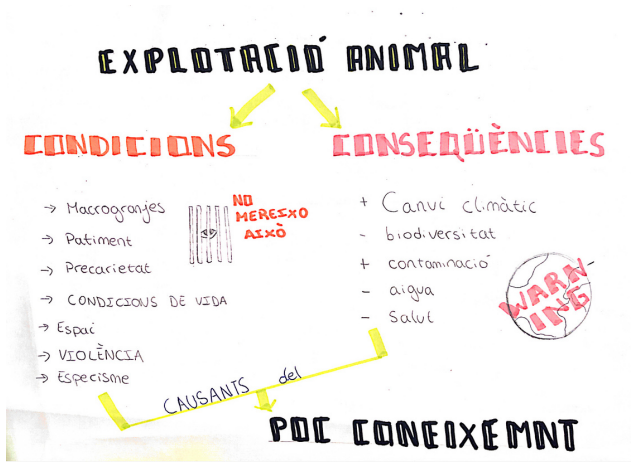 EXPLOTACIÓ ANIMAL
CONDICIONS
→ Macrogranjes
→ Patiment
→ Precarietat
→ CONDICIONS DE VIDA
→ Espai
→ VIOLÈNCIA
→ Especisme
NO
MEREIXO
AIXÒ
CONSEQÜÈNCIES
+ Canvi climàtic
- biodiversitat
+ contaminació
- aigua
- salut
WARN-
ING
CAUSANTS del
POC CONEIXEMNT